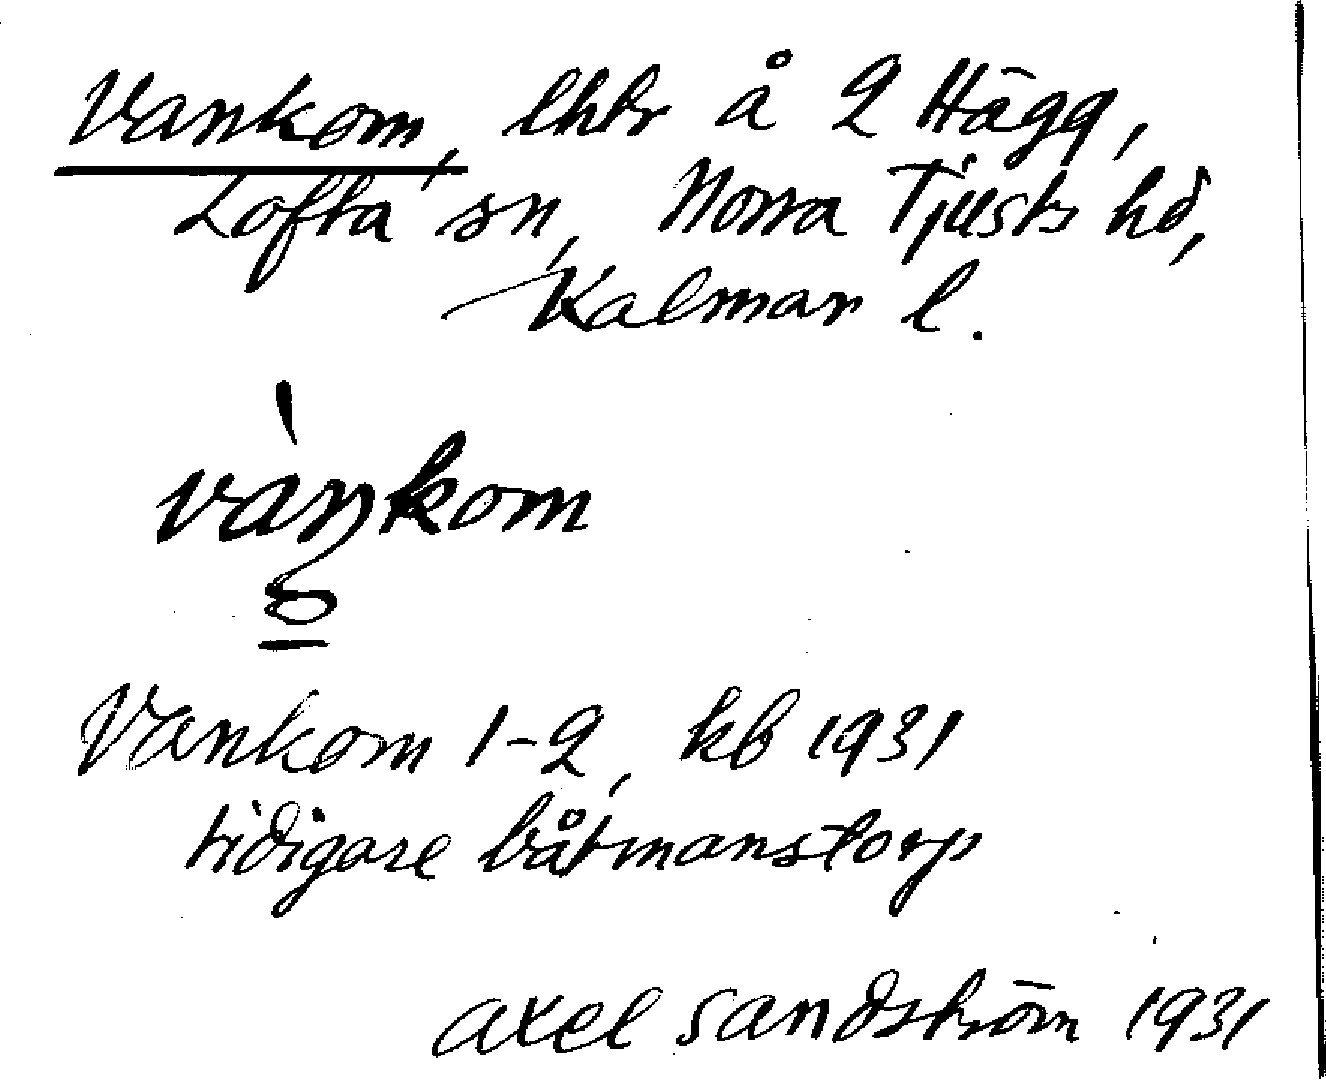 Vankom, lhtr å 2 Hägg,
Lofta sn, Norra Tjusts hd,
Kalmar l.
vàŋkom
Vankom 1-2, kb 1931
tidigare båtmanstorp
Axel Sandström 1931